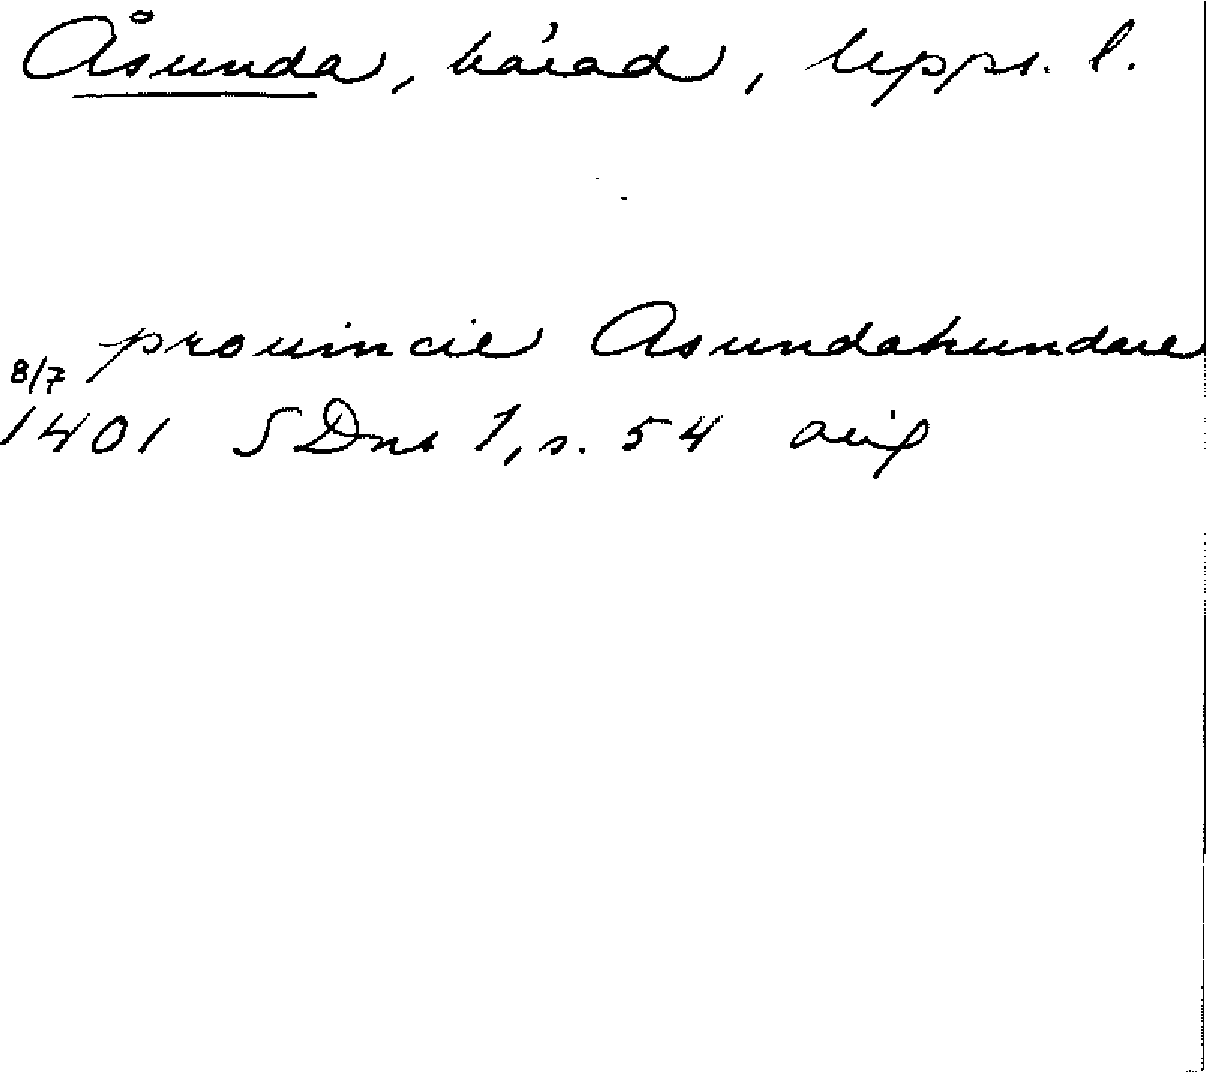 Åsunda, härad, Upps. l.
prouincie Asundahundare
8/7
1401 SDns 1, s. 54 orig